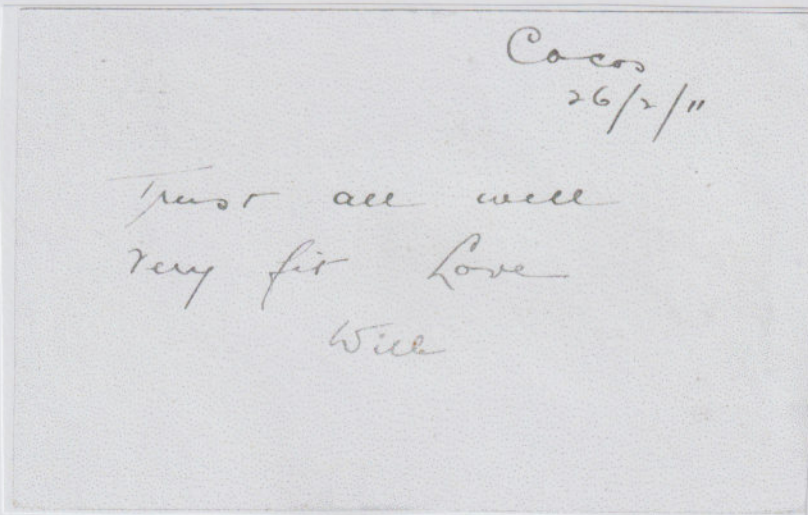 Cocos
26/2/11
Trust all well
Very fit Love
Will